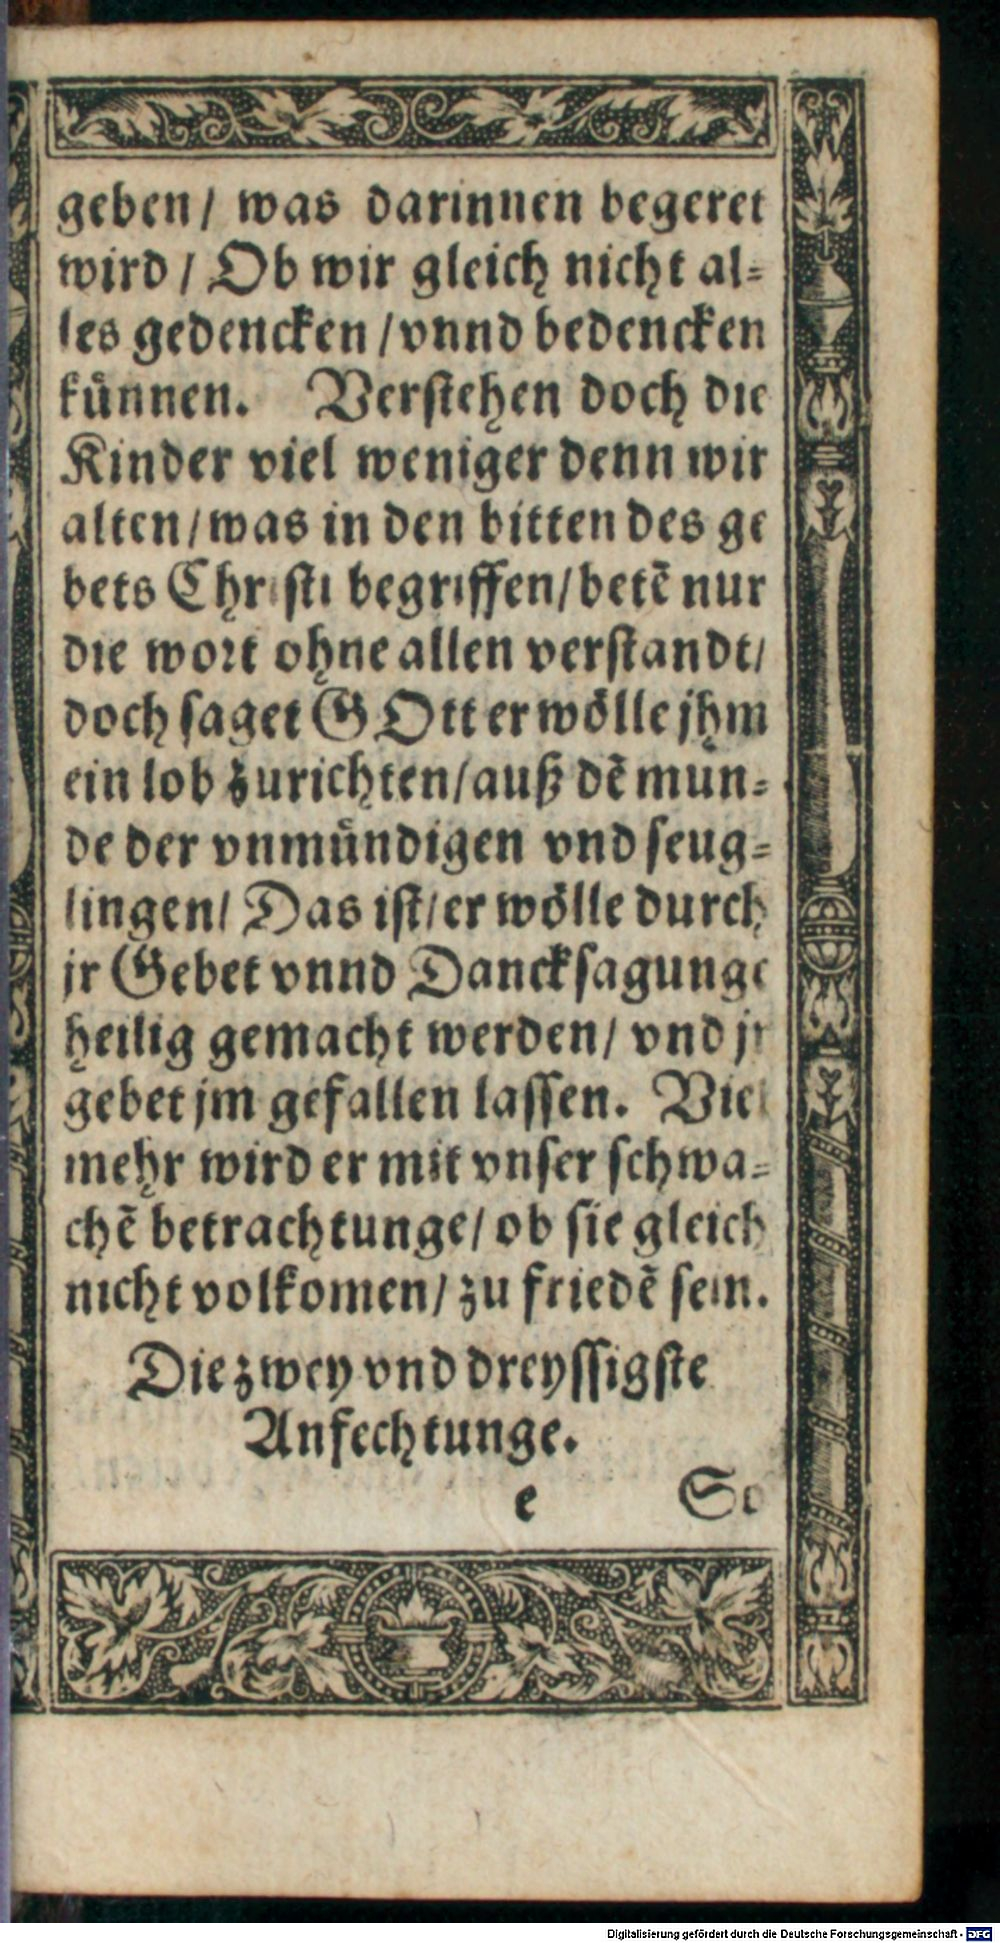 geben/ was darinnen begeret
wird/ Ob wir gleich nicht al⸗
les gedencken/vnnd bedencken
kuͤnnen. Verstehen doch die
Kinder viel weniger denn wir
alten/was in den bitten des ge
bets Christi begriffen/betẽ nur
die wort ohne allen verstandt/
doch saget GOtt er woͤlle jhm
ein lob zurichten/auß dẽ mun⸗
de der vnmuͤndigen vnd seug⸗
lingen/ Das ist/er woͤlle durch
jr Gebet vnnd Dancksagunge
heilig gemacht werden/ vnd jr
gebet jm gefallen lassen. Viel
mehr wird er mit vnser schwa⸗
chẽ betrachtunge/ ob sie gleich
nicht volkomen/ zu friedẽ sein.
Die zwey vnd dreyssigste
Anfechtunge.
e So
Digitalisierung gefördert durch die Deutsche Forschungsgemeinschaft - DFG